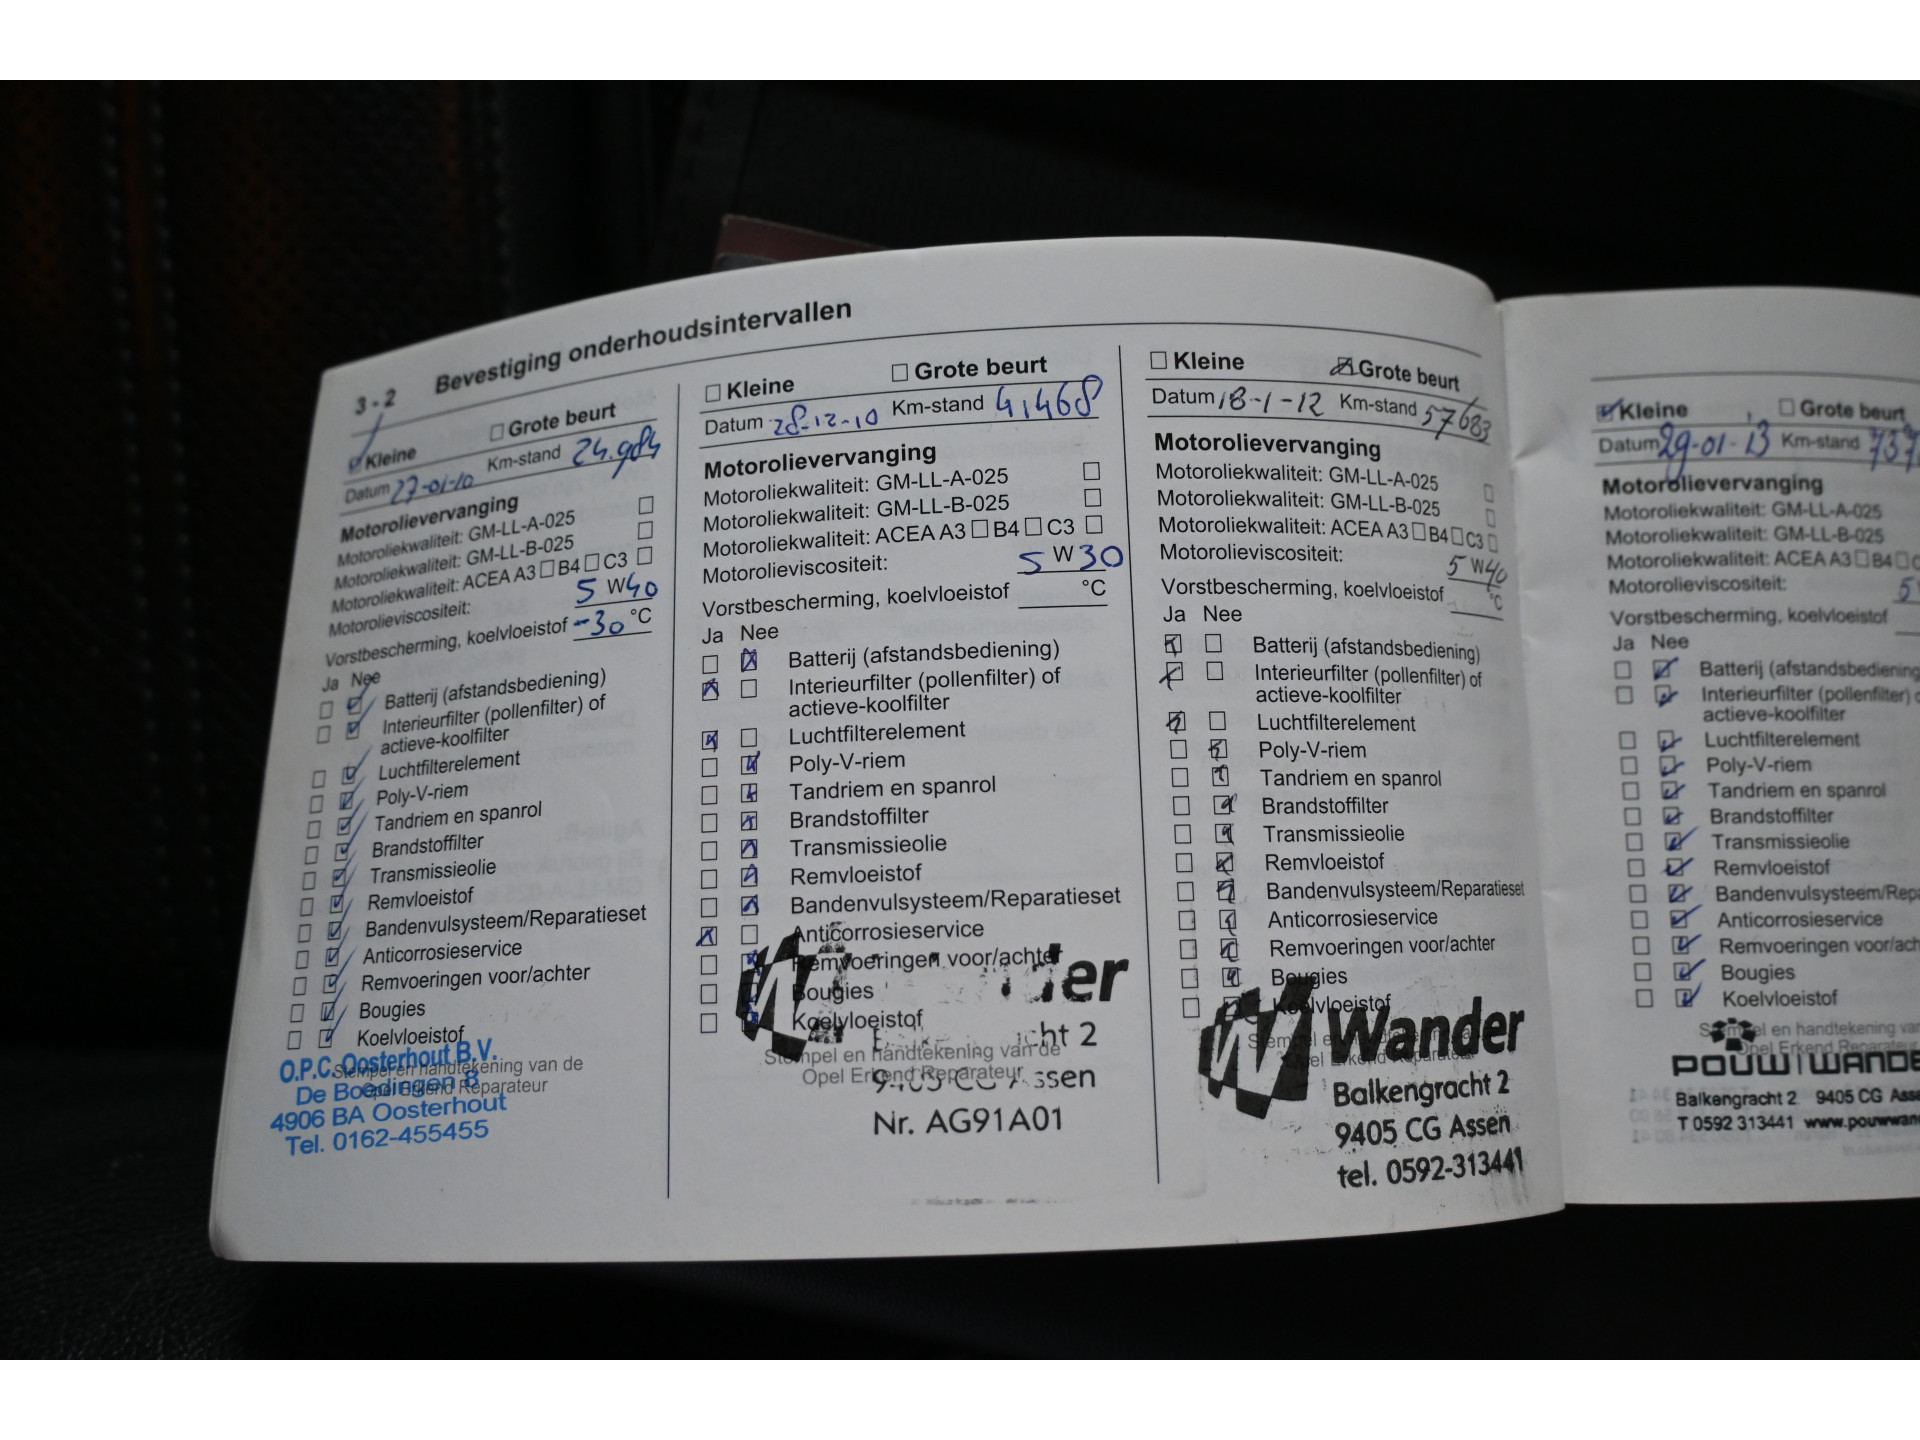 3 - 2 Bevestiging onderhoudsintervallen
Kleine Grote beurt
Datum 27-01-10 Km-stand 24.984
Motorolievervanging
Motoroliekwaliteit: GM-LL-A-025
Motoroliekwaliteit: GM-LL-B-025
Motoroliekwaliteit: ACEA A3 B4 C3
Motorolieviscositeit: 5 W40
Vorstbescherming, koelvloeistof -30 °C
Ja Nee
Batterij (afstandsbediening)
Interieurfilter (pollenfilter) of
actieve-koolfilter
Luchtfilterelement
Poly-V-riem
Tandriem en spanrol
Brandstoffilter
Transmissieolie
Remvloeistof
Bandenvulsysteem/Reparatieset
Anticorrosieservice
Remvoeringen voor/achter
Bougies
Koelvloeistof
Stempel en handtekening van de
Opel Erkend Reparateur
O.P.C. Oosterhout B.V.
De Boedingen 8
4906 BA Oosterhout
Tel. 0162-455455
Kleine Grote beurt
Datum 28-12-10 Km-stand 41468
Motorolievervanging
Motoroliekwaliteit: GM-LL-A-025
Motoroliekwaliteit: GM-LL-B-025
Motoroliekwaliteit: ACEA A3 B4 C3
Motorolieviscositeit: 5 W 30
Vorstbescherming, koelvloeistof °C
Ja Nee
Batterij (afstandsbediening)
Interieurfilter (pollenfilter) of
actieve-koolfilter
Luchtfilterelement
Poly-V-riem
Tandriem en spanrol
Brandstoffilter
Transmissieolie
Remvloeistof
Bandenvulsysteem/Reparatieset
Anticorrosieservice
Remvoeringen voor/achter
Bougies
Koelvloeistof
Stempel en handtekening van de
Opel Erkend Reparateur
Nr. AG91A01
Kleine Grote beurt
Datum 18-1-12 Km-stand 57683
Motorolievervanging
Motoroliekwaliteit: GM-LL-A-025
Motoroliekwaliteit: GM-LL-B-025
Motoroliekwaliteit: ACEA A3 B4 C3
Motorolieviscositeit: 5 W40
Vorstbescherming, koelvloeistof °C
Ja Nee
Batterij (afstandsbediening)
Interieurfilter (pollenfilter) of
actieve-koolfilter
Luchtfilterelement
Poly-V-riem
Tandriem en spanrol
Brandstoffilter
Transmissieolie
Remvloeistof
Bandenvulsysteem/Reparatieset
Anticorrosieservice
Remvoeringen voor/achter
Bougies
Koelvloeistof
Opel Erkend Reparateur
Wander
Balkengracht 2
9405 CG Assen
tel. 0592-313441
Kleine Grote beurt
Datum 29-01-13 Km-stand 737
Motorolievervanging
Motoroliekwaliteit: GM-LL-A-025
Motoroliekwaliteit: GM-LL-B-025
Motoroliekwaliteit: ACEA A3 B4 C
Motorolieviscositeit: 5
Vorstbescherming, koelvloeistof
Ja Nee
Batterij (afstandsbediening
Interieurfilter (pollenfilter) o
actieve-koolfilter
Luchtfilterelement
Poly-V-riem
Tandriem en spanrol
Brandstoffilter
Transmissieolie
Remvloeistof
Bandenvulsysteem/Repa
Anticorrosieservice
Remvoeringen voor/ach
Bougies
Koelvloeistof
en handtekening van
Opel Erkend Reparateur
POUW WANDE
Balkengracht 2 9405 CG Asse
T 0592 313441 www.pouwwan